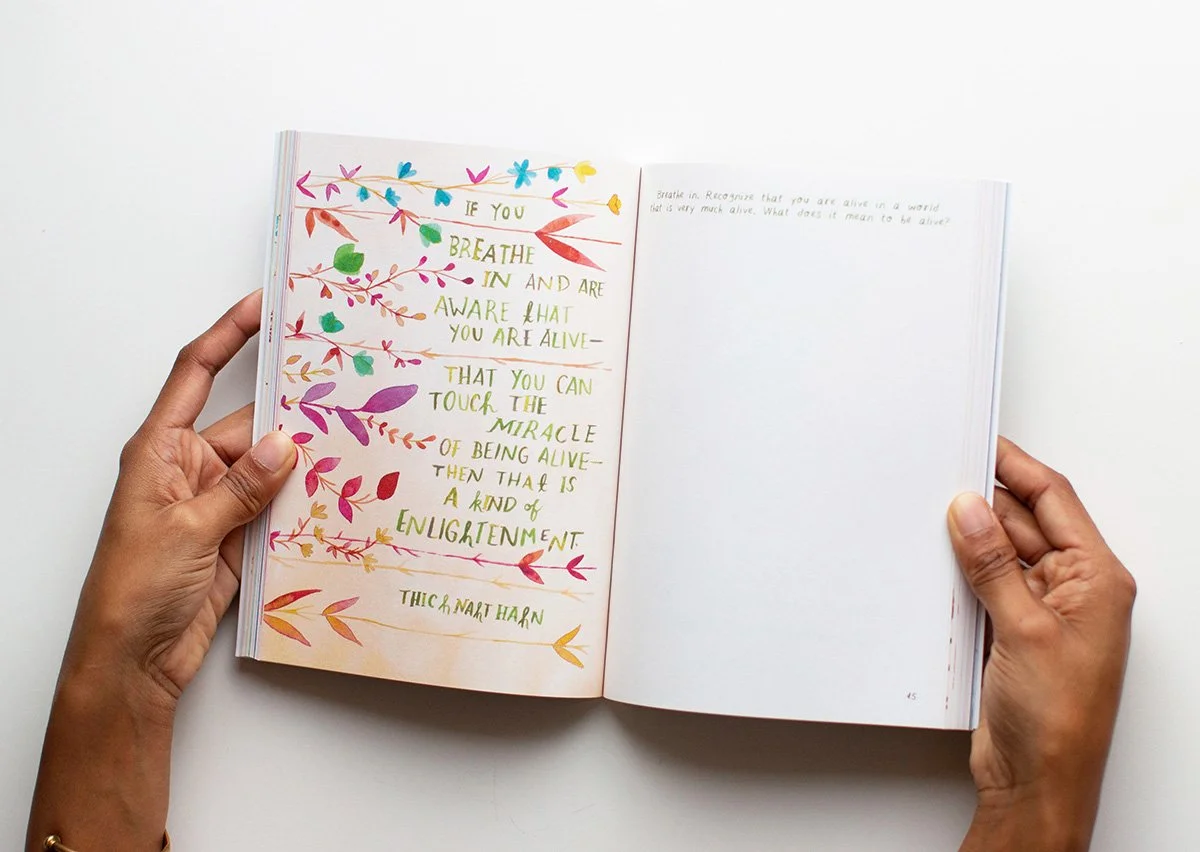 IF YOU
BREATHE
IN AND ARE
AWARE thAT
YOU ARE ALIVE—
THAT YOU CAN
TOUCh THE
MIRACLE
OF BEING ALIVE—
THEN THAt IS
A kIND of
ENLIGhTENMENT.
THICh NAhT HAhN
Breathe in. Recognize that you are alive in a world
that is very much alive. What does it mean to be alive?
45